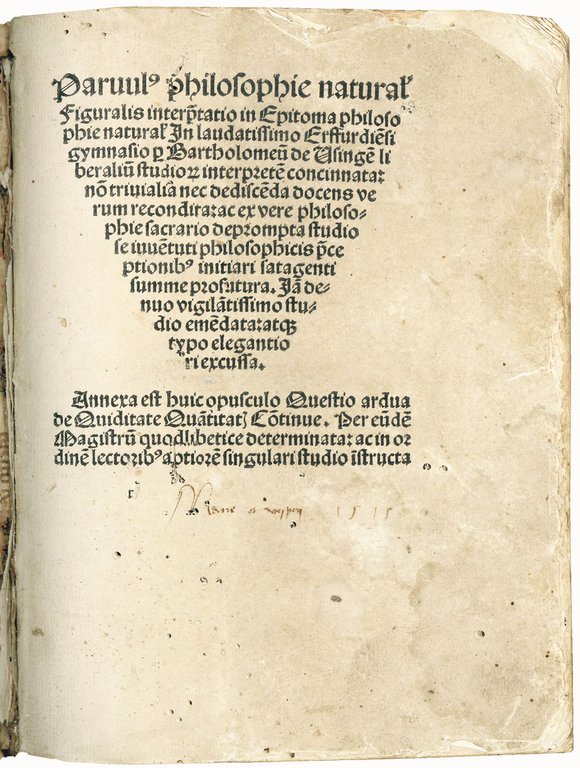 Paruulꝰ philosophie naturaꝉ
Figuralis interp̄tatio in Epitoma philoso
phie naturaꝉ In laudatissimo Erffurdiēsi
gymnasio ꝑ Bartholomeū de Usingē li
beraliū studioꝝ interpretē concinnata:
nō triuialia nec dediscēda docens ve
rum recondita: ac ex vere philoso⸗
phie sacrario deprompta studio
se iuuētuti philosophicis p̄ce
ptionibꝰ initiari satagenti
summe profutura. Iā de⸗
nuo vigilātissimo stu⸗
dio emēdata: atqꝫ
typo elegantio
ri excussa.
Annexa est huic opusculo Questio ardua
de Quiditate Quātitatꝭ Cōtinue. Per eūdē
Magistrū quodlibetice determinata: ac in or
dinē lectoribꝰ aptiorē singulari studio īstructa
1515